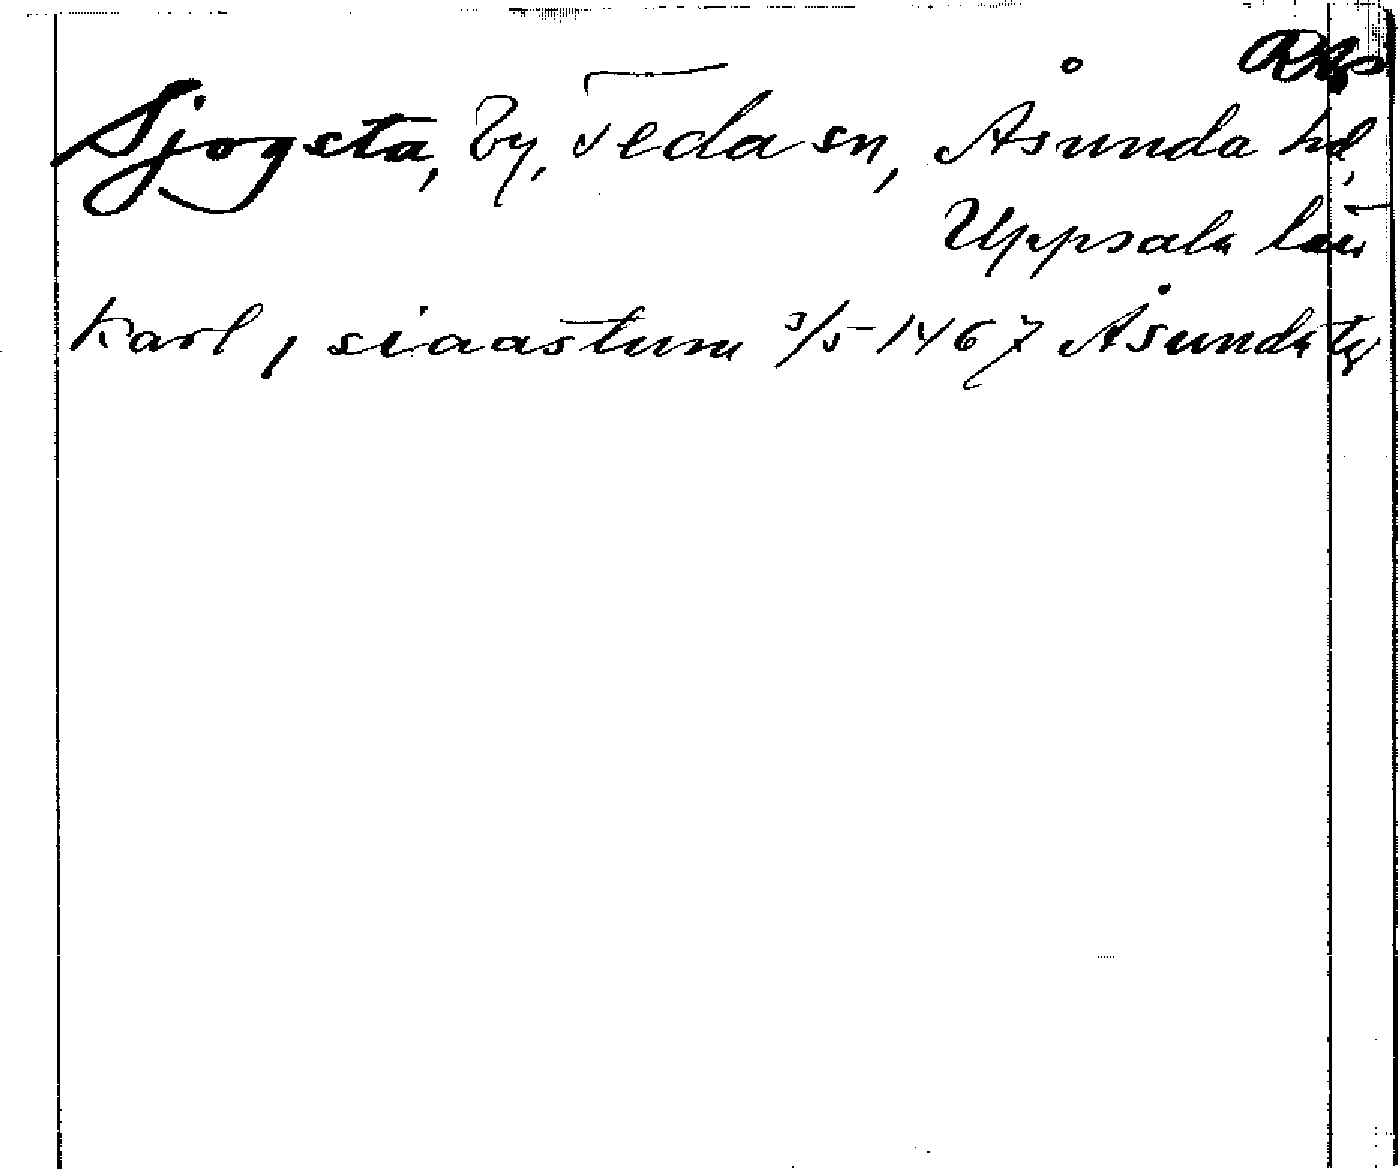 Sjogsta, by, Teda sn, Åsunda hd,
Uppsala län
Karl, i siaastum 3/5 1467 Åsunda tg